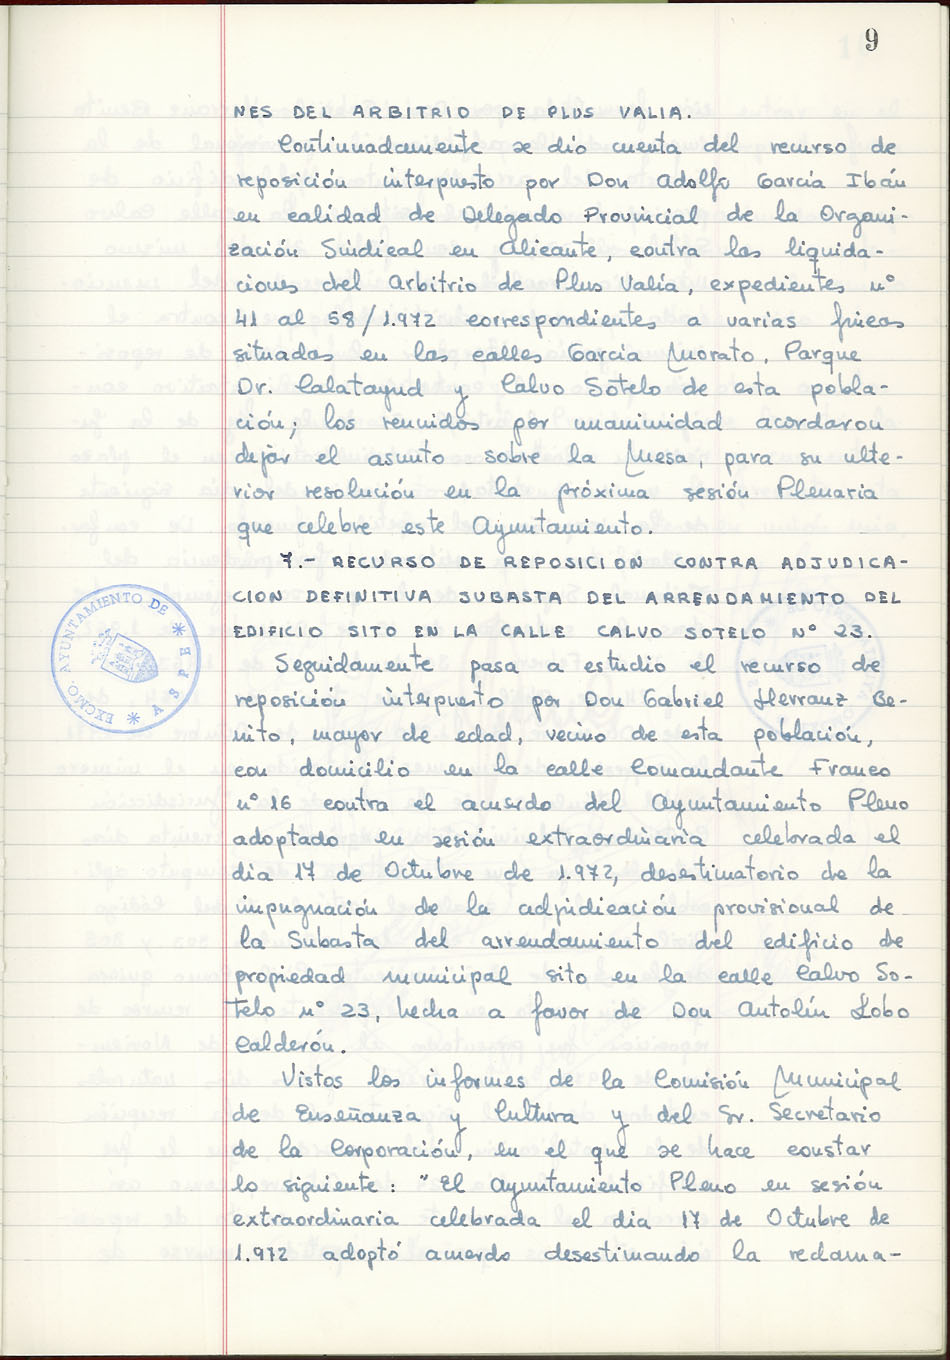 9
NES DEL ARBITRIO DE PLUS VALIA.
Continuadamente se dio cuenta del recurso de
reposición interpuesto por Don Adolfo García Ibán
en calidad de Delegado Provincial de la Organi-
zación Sindical en Alicante, contra las liquida-
ciones del Arbitrio de Plus Valía, expedientes nº
41 al 58/1.972 correspondientes a varias fincas
situadas en las calles García Morato, Parque
Dr. Calatayud y Calvo Sotelo de esta pobla-
ción; los reunidos por unanimidad acordaron
dejar el asunto sobre la Mesa, para su ulte-
rior resolución en la próxima sesión Plenaria
que celebre este Ayuntamiento.
7.- RECURSO DE REPOSICION CONTRA ADJUDICA-
CION DEFINITIVA SUBASTA DEL ARRENDAMIENTO DEL
EDIFICIO SITO EN LA CALLE CALVO SOTELO Nº 23.
EXCMO. AYUNTAMIENTO DE * ASPE *
Seguidamente pasa a estudio el recurso de
reposición interpuesto por Don Gabriel Herranz Be-
nito, mayor de edad, vecino de esta población,
con domicilio en la calle Comandante Franco
nº 16 contra el acuerdo del Ayuntamiento Pleno
adoptado en sesión extraordinaria celebrada el
dia 17 de Octubre de 1.972, desestimatorio de la
impugnación de la adjudicación provisional de
la Subasta del arrendamiento del edificio de
propiedad municipal sito en la calle Calvo So-
telo nº 23, hecha a favor de Don Antolín Lobo
Calderón.
Vistos los informes de la Comisión Municipal
de Enseñanza y Cultura y del Sr. Secretario
de la Corporación, en el que se hace constar
lo siguiente: "El Ayuntamiento Pleno en sesión
extraordinaria celebrada el dia 17 de Octubre de
1.972 adoptó acuerdo desestimando la reclama-